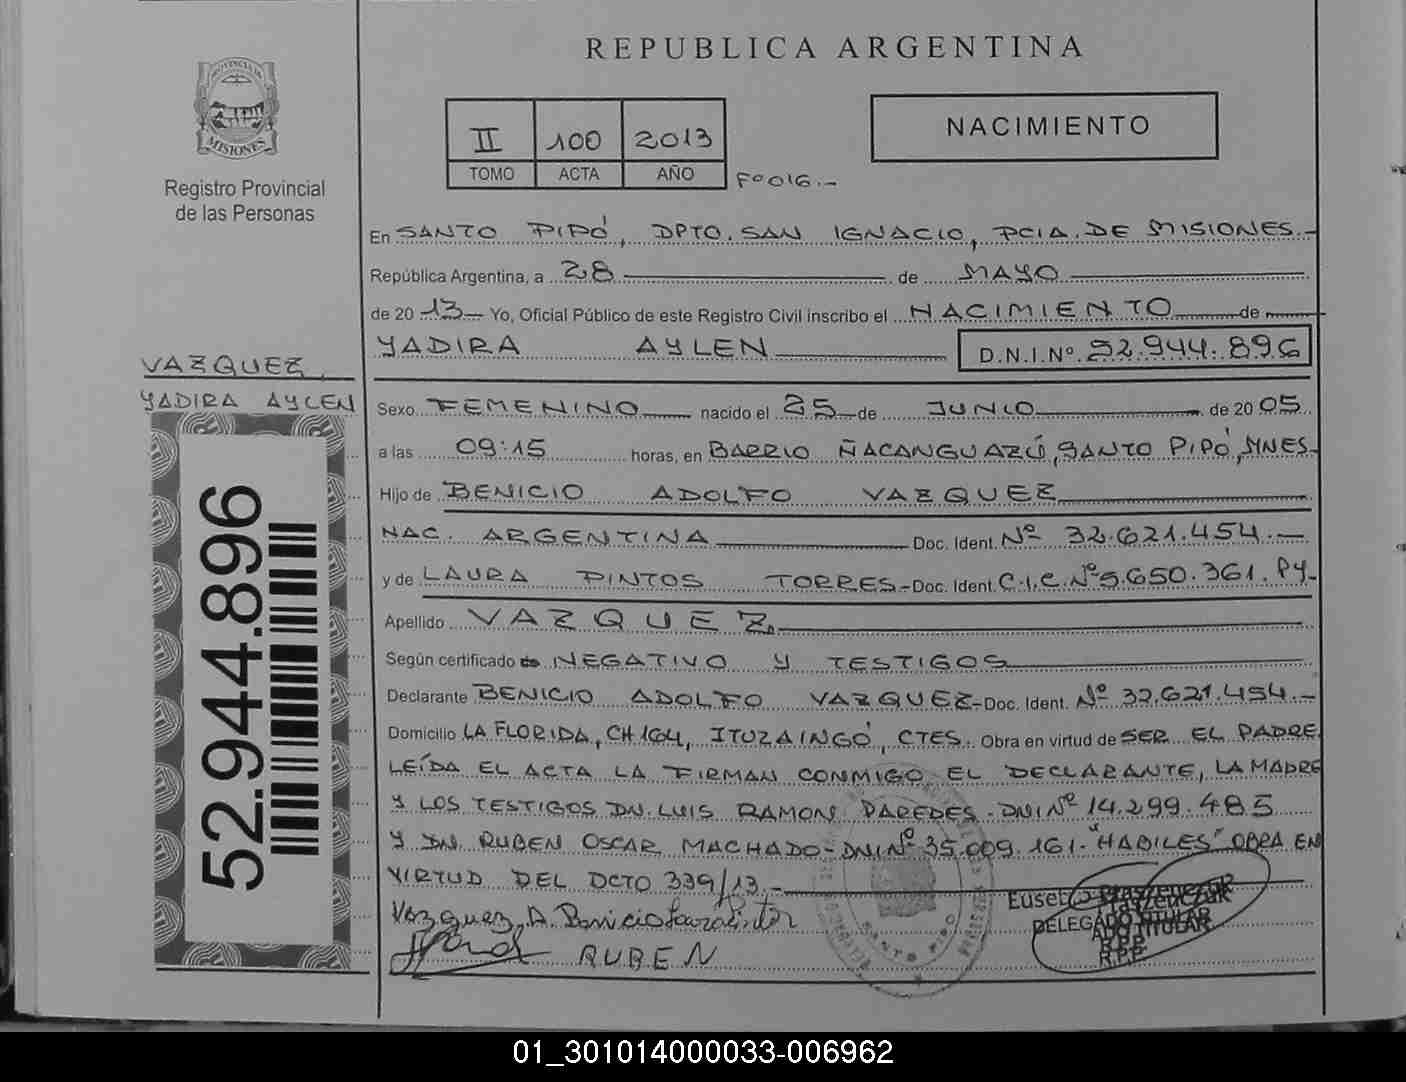 REPUBLICA ARGENTINA
PROVINCIA DE
MISIONES
Registro Provincial
de las Personas
II 100 2013
TOMO ACTA AÑO
Fº 016.-
NACIMIENTO
En SANTO PIPÓ, DPTO. SAN IGNACIO, PCIA. DE MISIONES.-
República Argentina, a 28 de MAYO
de 2013 Yo, Oficial Público de este Registro Civil inscribo el NACIMIENTO de
YADIRA AYLEN D.N.I.Nº. 52.944.896
VAZQUEZ,
YADIRA AYLEN
52.944.896
Sexo FEMENINO nacido el 25 de JUNIO de 2005
a las 09:15 horas, en BARRIO ÑACANGUAZÚ, SANTO PIPÓ, MNES-
Hijo de BENICIO ADOLFO VAZQUEZ
NAC. ARGENTINA Doc. Ident. Nº 32.621.454.-
y de LAURA PINTOS TORRES- Doc. Ident. C.I.C. Nº 5.650.361. PY-
Apellido VAZQUEZ.
Según certificado de NEGATIVO Y TESTIGOS
Declarante BENICIO ADOLFO VAZQUEZ- Doc. Ident. Nº 32.621.454.-
Domicilio LA FLORIDA, CH 164, ITUZAINGÓ, CTES. Obra en virtud de SER EL PADRE.
LEÍDA EL ACTA LA FIRMAN CONMIGO EL DECLARANTE, LA MADRE
Y LOS TESTIGOS DN. LUIS RAMON PAREDES. DNI Nº 14.299.485
Y DN. RUBEN OSCAR MACHADO- DNI Nº 35.009.161- "HABILES" OBRA EN
VIRTUD DEL DCTO 339/13.-
Vazquez, A. Benicio
RUBEN
SANTO PIPO
DELEGADO TITULAR
R.P.P.
01_301014000033-006962